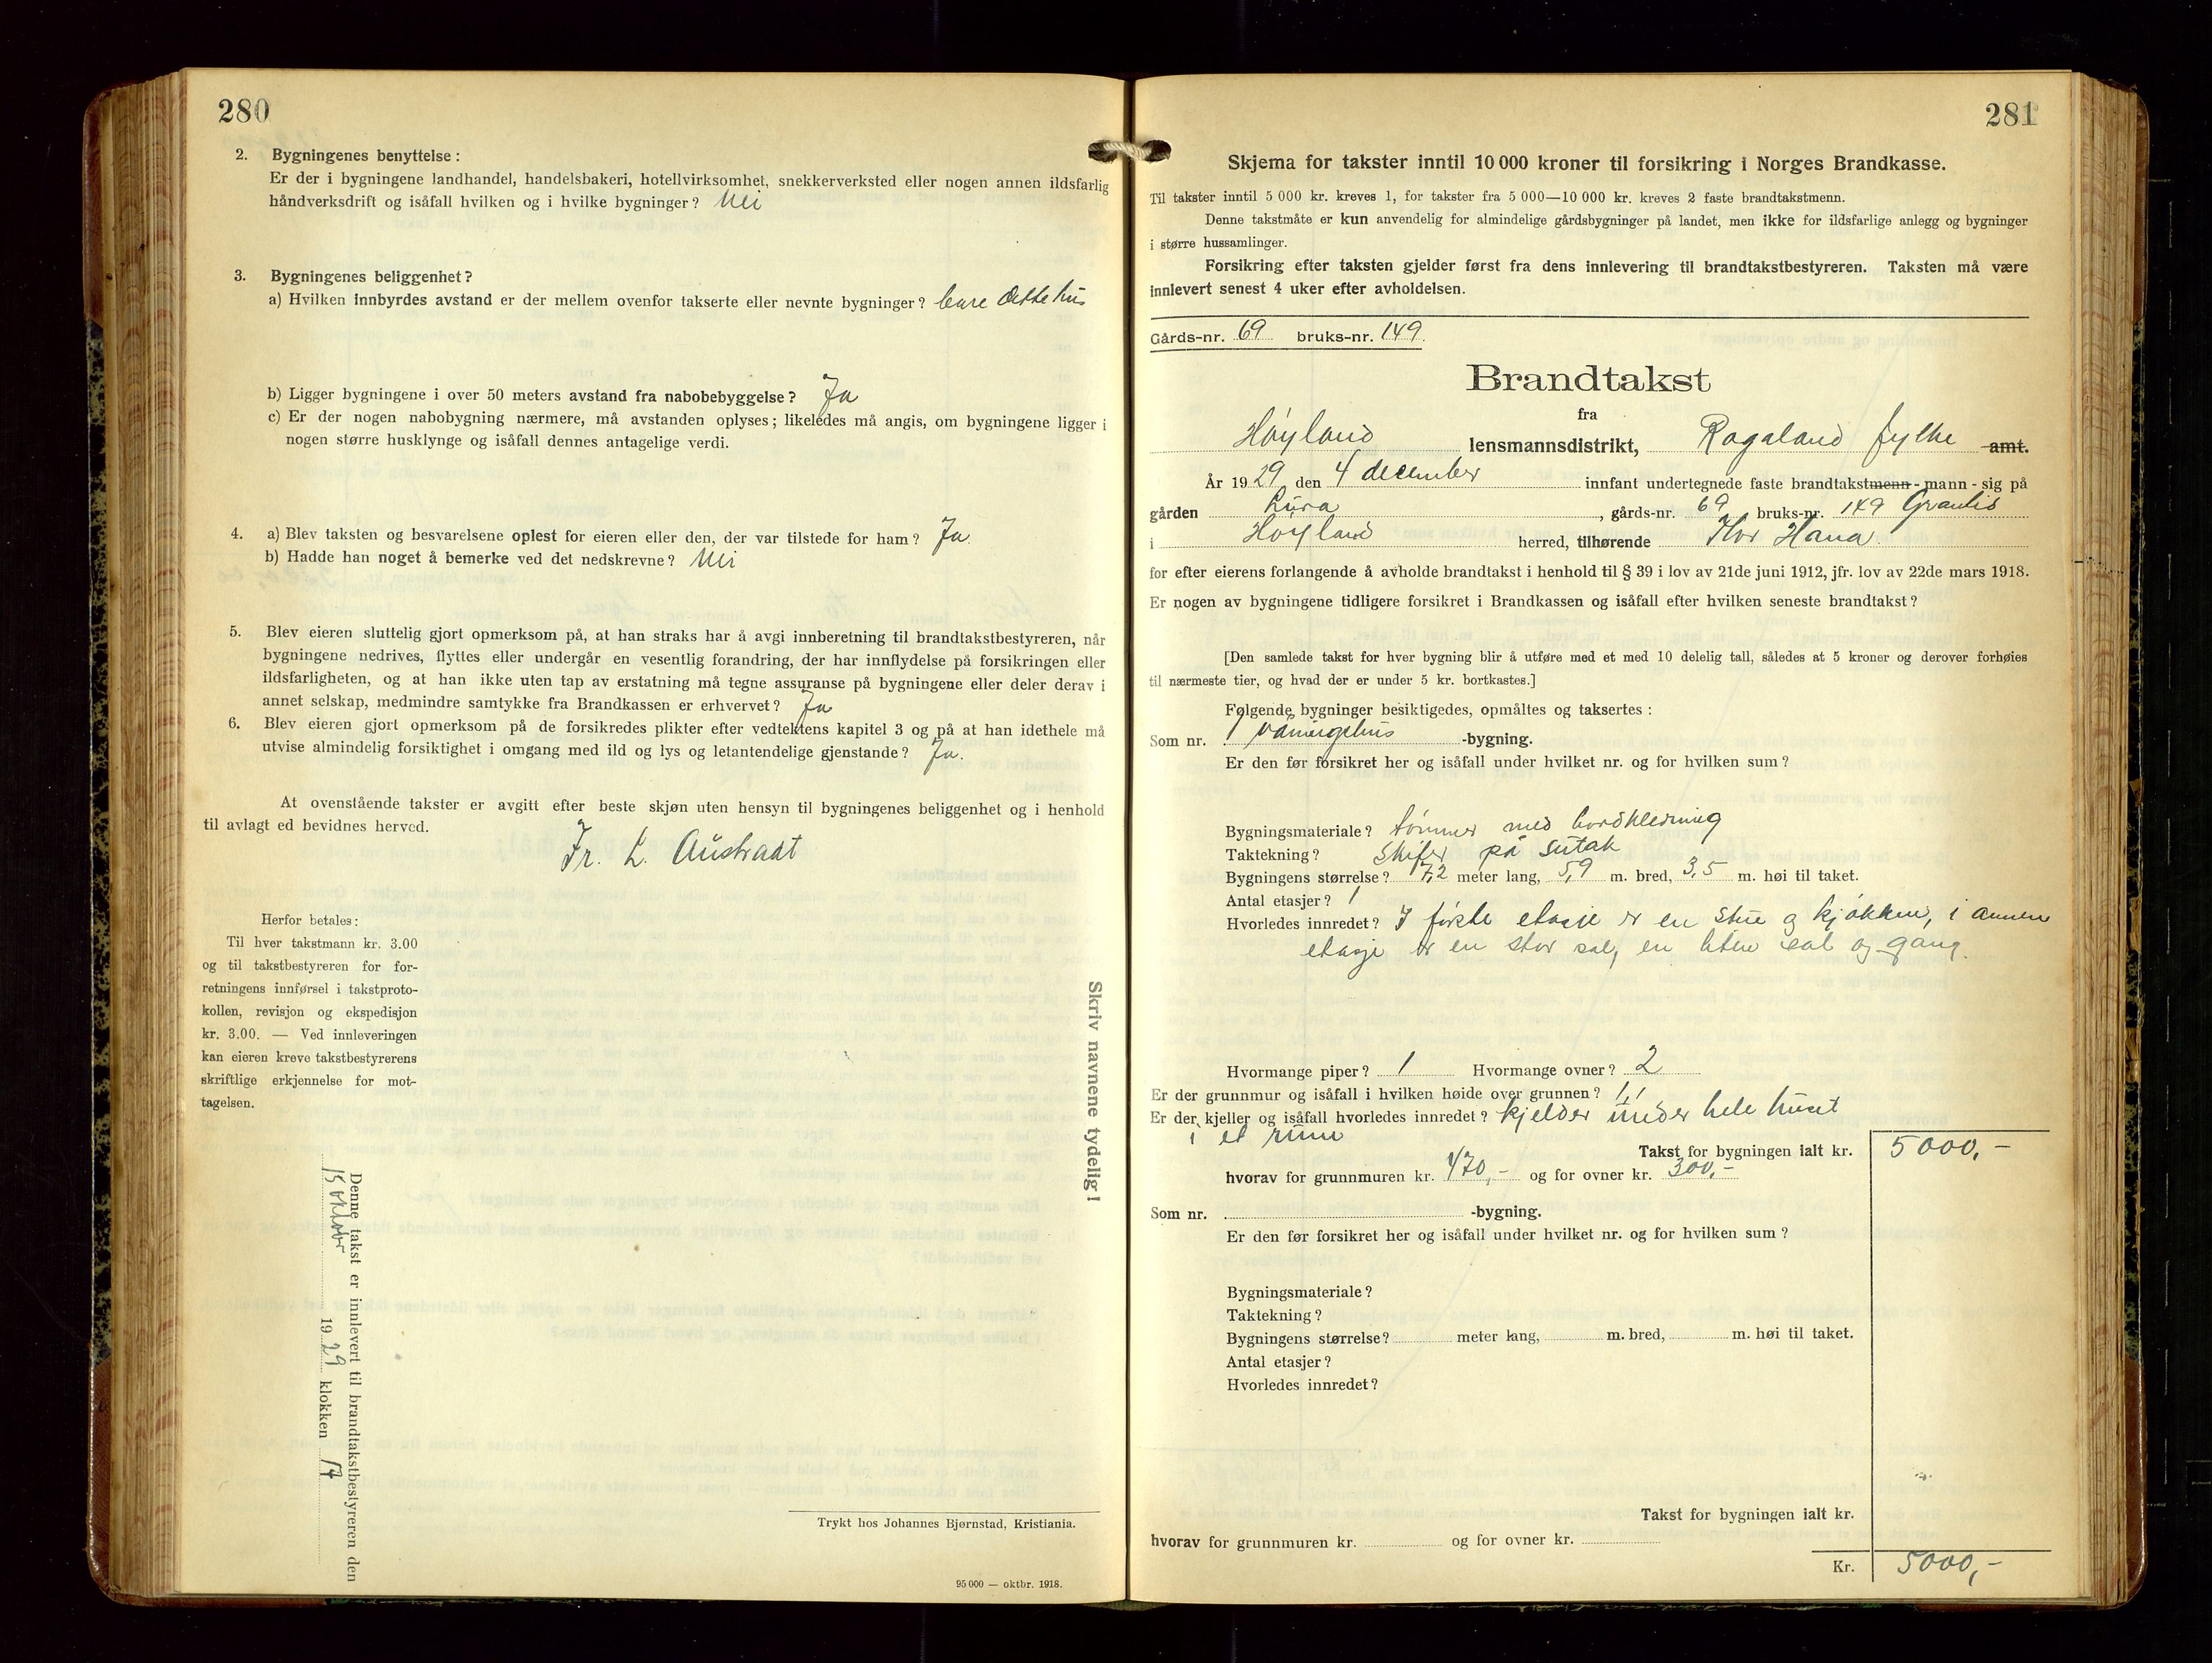 280
2. Bygningenes benyttelse:
Er der i bygningene landhandel, handelsbakeri, hotellvirksomhet, snekkerverksted eller nogen annen ildsfarlig
håndverksdrift og isåfall hvilken og i hvilke bygninger? Nei
3. Bygningenes beliggenhet?
a) Hvilken innbyrdes avstand er der mellem ovenfor takserte eller nevnte bygninger? bare dette hus
b) Ligger bygningene i over 50 meters avstand fra nabobebyggelse? Ja
c) Er der nogen nabobygning nærmere, må avstanden oplyses; likeledes må angis, om bygningene ligger i
nogen større husklynge og isåfall dennes antagelige verdi.
4. a) Blev taksten og besvarelsene oplest for eieren eller den, der var tilstede for ham? Ja
b) Hadde han noget å bemerke ved det nedskrevne? Nei
5. Blev eieren sluttelig gjort opmerksom på, at han straks har å avgi innberetning til brandtakstbestyreren, når
bygningene nedrives, flyttes eller undergår en vesentlig forandring, der har innflydelse på forsikringen eller
ildsfarligheten, og at han ikke uten tap av erstatning må tegne assuranse på bygningene eller deler derav i
annet selskap, medmindre samtykke fra Brandkassen er erhvervet? Ja
6. Blev eieren gjort opmerksom på de forsikredes plikter efter vedtektens kapitel 3 og på at han idethele må
utvise almindelig forsiktighet i omgang med ild og lys og letantendelige gjenstande? Ja.
At ovenstående takster er avgitt efter beste skjøn uten hensyn til bygningenes beliggenhet og i henhold
til avlagt ed bevidnes herved.
Fr. L. Austraat
Herfor betales:
Til hver takstmann kr. 3.00
og til takstbestyreren for for-
retningens innførsel i takstproto-
kollen, revisjon og ekspedisjon
kr. 3.00. — Ved innleveringen
kan eieren kreve takstbestyrerens
skriftlige erkjennelse for mot-
tagelsen.
Skriv navnene tydelig!
Denne takst er innlevert til brandtakstbestyreren den
15 oktober 1929 klokken 17
Trykt hos Johannes Bjørnstad, Kristiania.
95 000 — oktbr. 1918.
281
Skjema for takster inntil 10 000 kroner til forsikring i Norges Brandkasse.
Til takster inntil 5 000 kr. kreves 1, for takster fra 5 000—10 000 kr. kreves 2 faste brandtakstmenn.
Denne takstmåte er kun anvendelig for almindelige gårdsbygninger på landet, men ikke for ildsfarlige anlegg og bygninger
i større hussamlinger.
Forsikring efter taksten gjelder først fra dens innlevering til brandtakstbestyreren. Taksten må være
innlevert senest 4 uker efter avholdelsen.
Gårds-nr. 69 bruks-nr. 149.
Brandtakst
fra
Høyland lensmannsdistrikt, Rogaland fylke amt.
År 1929 den 4 december innfant undertegnede faste brandtakstmenn - mann - sig på
gården Lura, gårds-nr. 69 bruks-nr. 149
i Høyland herred, tilhørende Thor Hana.
for efter eierens forlangende å avholde brandtakst i henhold til § 39 i lov av 21de juni 1912, jfr. lov av 22de mars 1918.
Er nogen av bygningene tidligere forsikret i Brandkassen og isåfall efter hvilken seneste brandtakst?
[Den samlede takst for hver bygning blir å utføre med et med 10 delelig tall, således at 5 kroner og derover forhøies
til nærmeste tier, og hvad der er under 5 kr. bortkastes.]
Følgende bygninger besiktigedes, opmåltes og taksertes:
Som nr. 1 våningshus -bygning.
Er den før forsikret her og isåfall under hvilket nr. og for hvilken sum?
Bygningsmateriale? tømmer med bordkledning
Taktekning? Skifer på sutak
Bygningens størrelse? 7,2 meter lang, 5,9 m. bred, 3,5 m. høi til taket.
Antal etasjer? 1
Hvorledes innredet? I første etasje er en stue og kjøkken, i annen
etasje er en stor sal, en liten sal og gang.
Hvormange piper? 1 Hvormange ovner? 2
Er der grunnmur og isåfall i hvilken høide over grunnen? 1,1
Er der kjeller og isåfall hvorledes innredet? Kjelder under hele huset
i et rum
Takst for bygningen ialt kr. 5000,-
hvorav for grunnmuren kr. 470,- og for ovner kr. 300,-
Som nr. -bygning.
Er den før forsikret her og isåfall under hvilket nr. og for hvilken sum?
Bygningsmateriale?
Taktekning?
Bygningens størrelse? meter lang, m. bred, m. høi til taket.
Antal etasjer?
Hvorledes innredet?
Takst for bygningen ialt kr.
hvorav for grunnmuren kr. og for ovner kr.
Kr. 5000,-